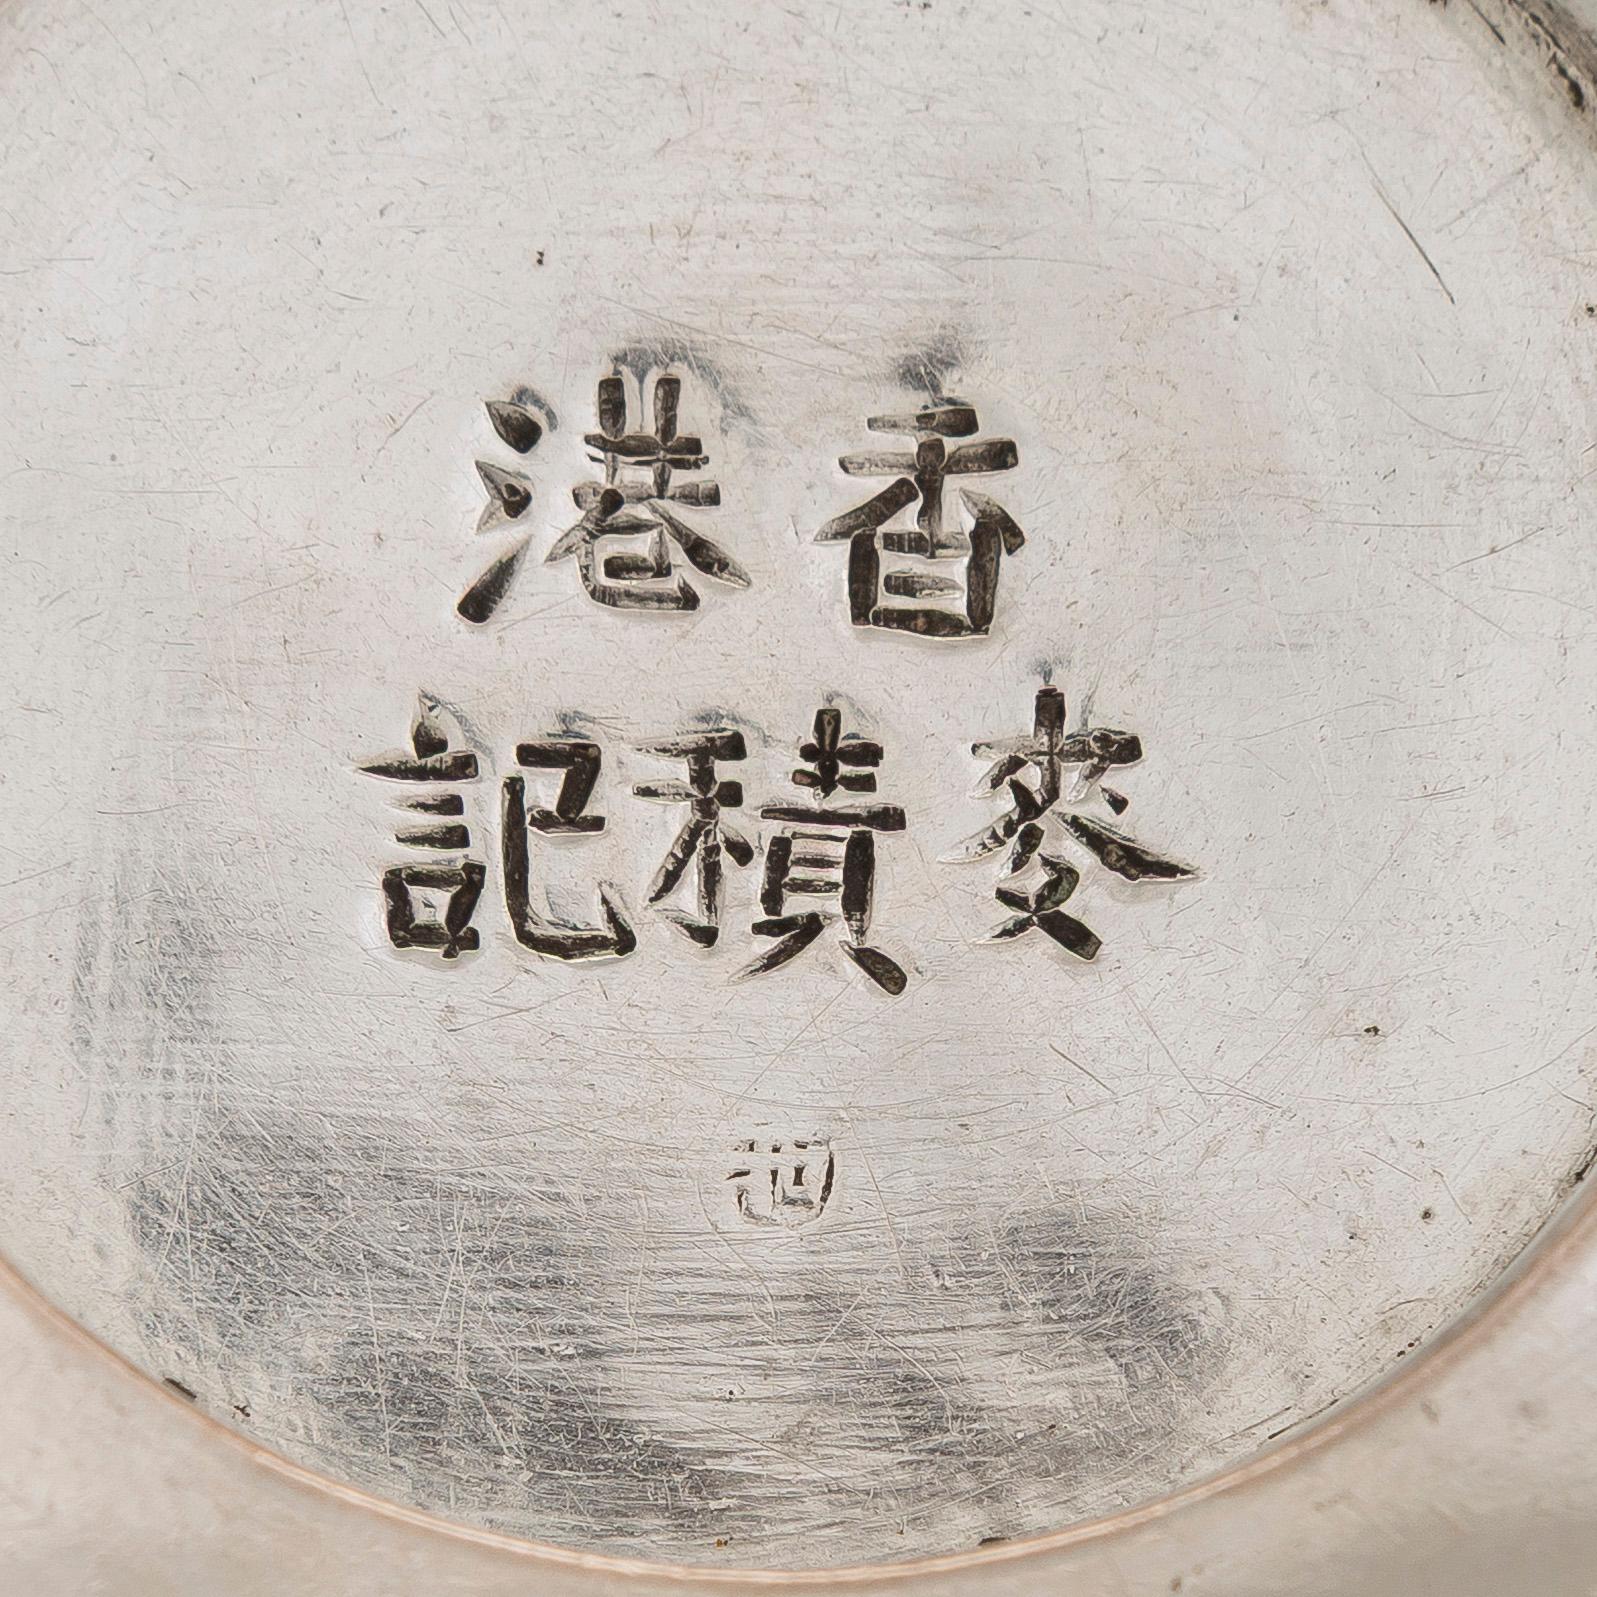 香港
麥積記